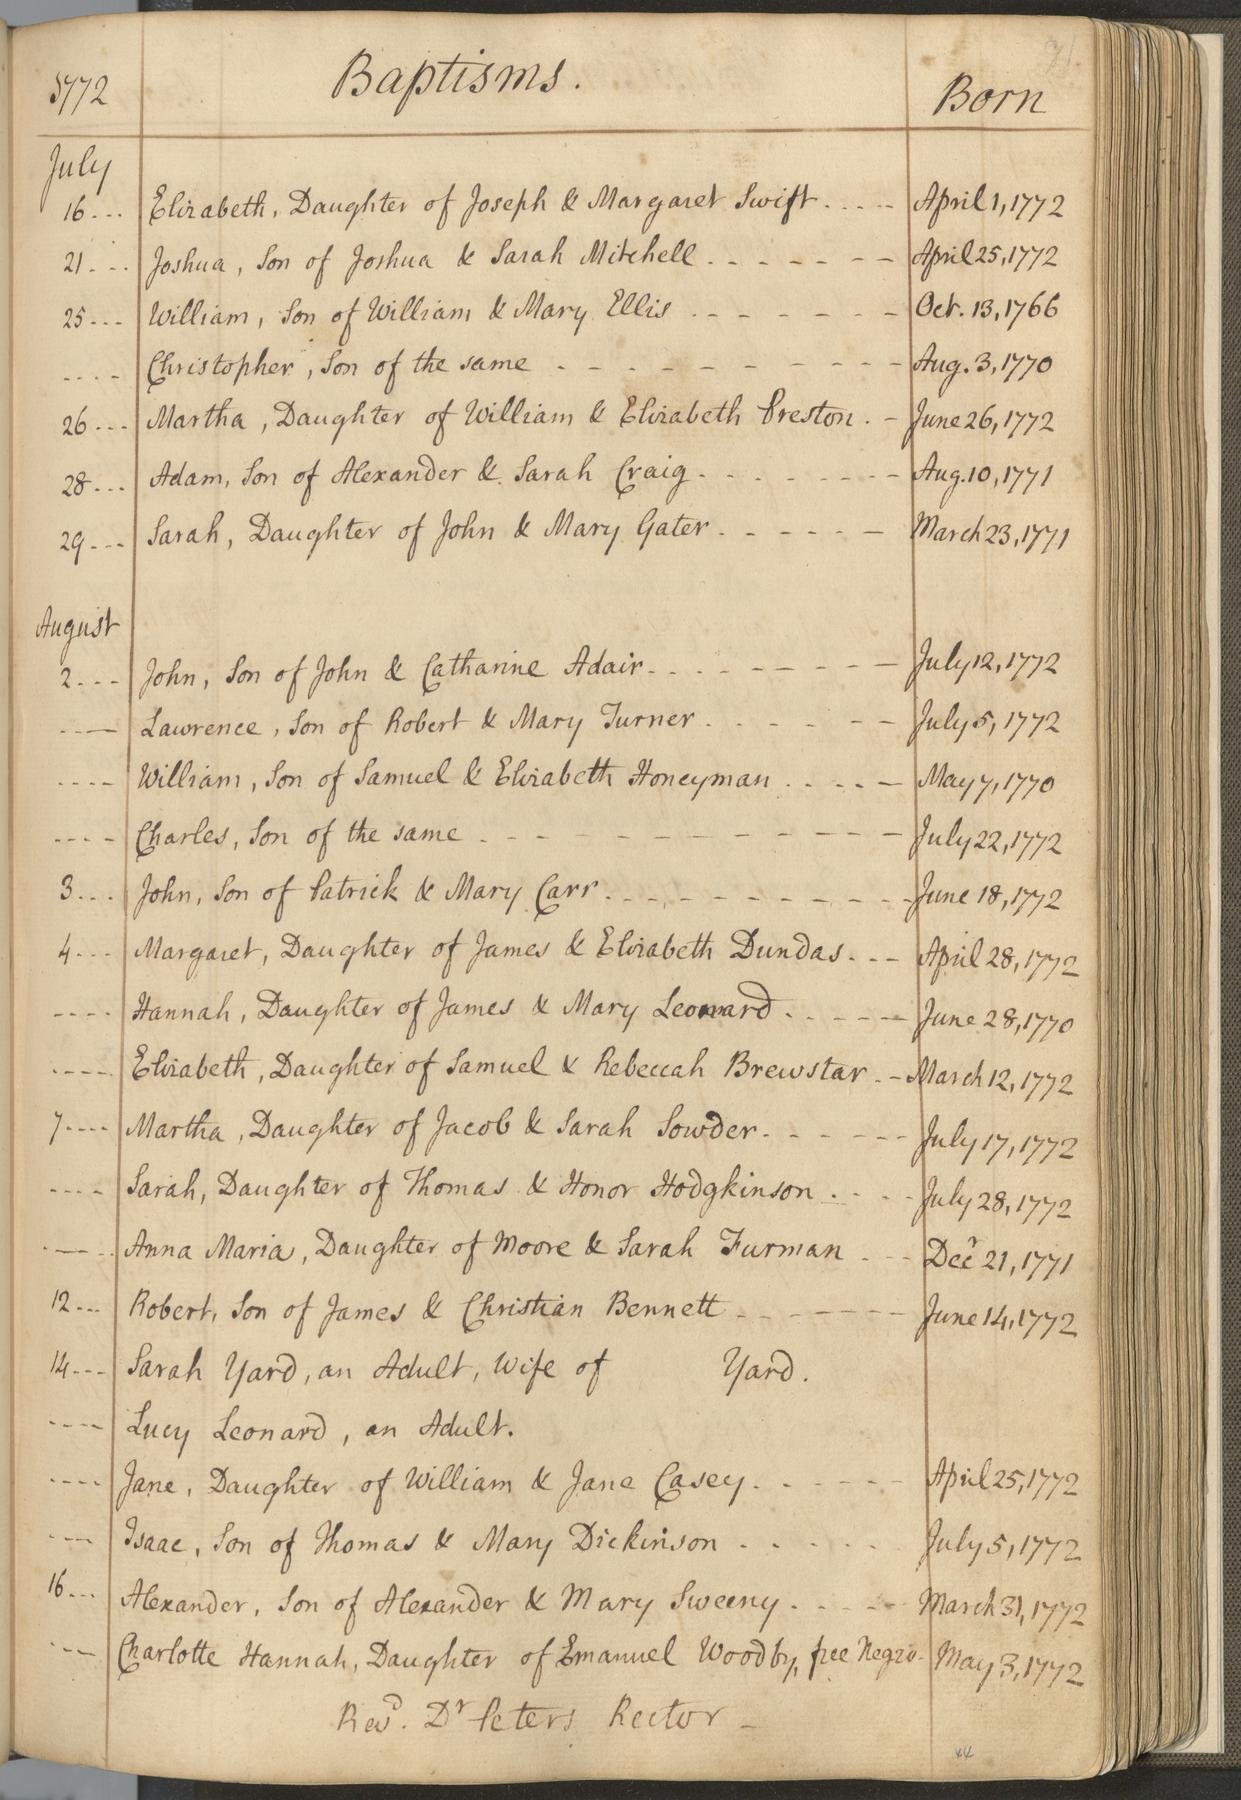 1772 Baptisms. Born
July
16... Elizabeth, Daughter of Joseph & Margaret Swift..... April 1, 1772
21.... Joshua, Son of Joshua & Sarah Mitchell....... April 25, 1772
25... William, Son of William & Mary Ellis....... Oct. 13, 1766
.... Christopher, Son of the same.......... Aug. 3, 1770
26... Martha, Daughter of William & Elizabeth Preston.. June 26, 1772
28... Adam, Son of Alexander & Sarah Craig........ Aug. 10, 1771
29... Sarah, Daughter of John & Mary Gater...... March 23, 1771
August
2... John, Son of John & Catharine Adair......... July 12, 1772
.... Lawrence, Son of Robert & Mary Turner...... July 5, 1772
.... William, Son of Samuel & Elizabeth Honeyman..... May 7, 1770
.... Charles, Son of the same............ July 22, 1772
3... John, Son of Patrick & Mary Carr........... June 18, 1772
4... Margaret, Daughter of James & Elizabeth Dundas... April 28, 1772
.... Hannah, Daughter of James & Mary Leonard..... June 28, 1770
.... Elizabeth, Daughter of Samuel & Rebeccah Brewstar.. March 12, 1772
7.... Martha, Daughter of Jacob & Sarah Sowder...... July 17, 1772
.... Sarah, Daughter of Thomas & Honor Hodgkinson.... July 28, 1772
.... Anna Maria, Daughter of Moore & Sarah Furman... Decr 21, 1771
12... Robert, Son of James & Christian Bennett....... June 14, 1772
14... Sarah Yard, an Adult, Wife of Yard.
.... Lucy Leonard, an Adult.
.... Jane, Daughter of William & Jane Casey..... April 25, 1772
... Isaac, Son of Thomas & Mary Dickinson..... July 5, 1772
16... Alexander, Son of Alexander & Mary Sweeny..... March 31, 1772
... Charlotte Hannah, Daughter of Emanuel Woodby, free Negro- May 3, 1772
Revd. Dr Peters Rector